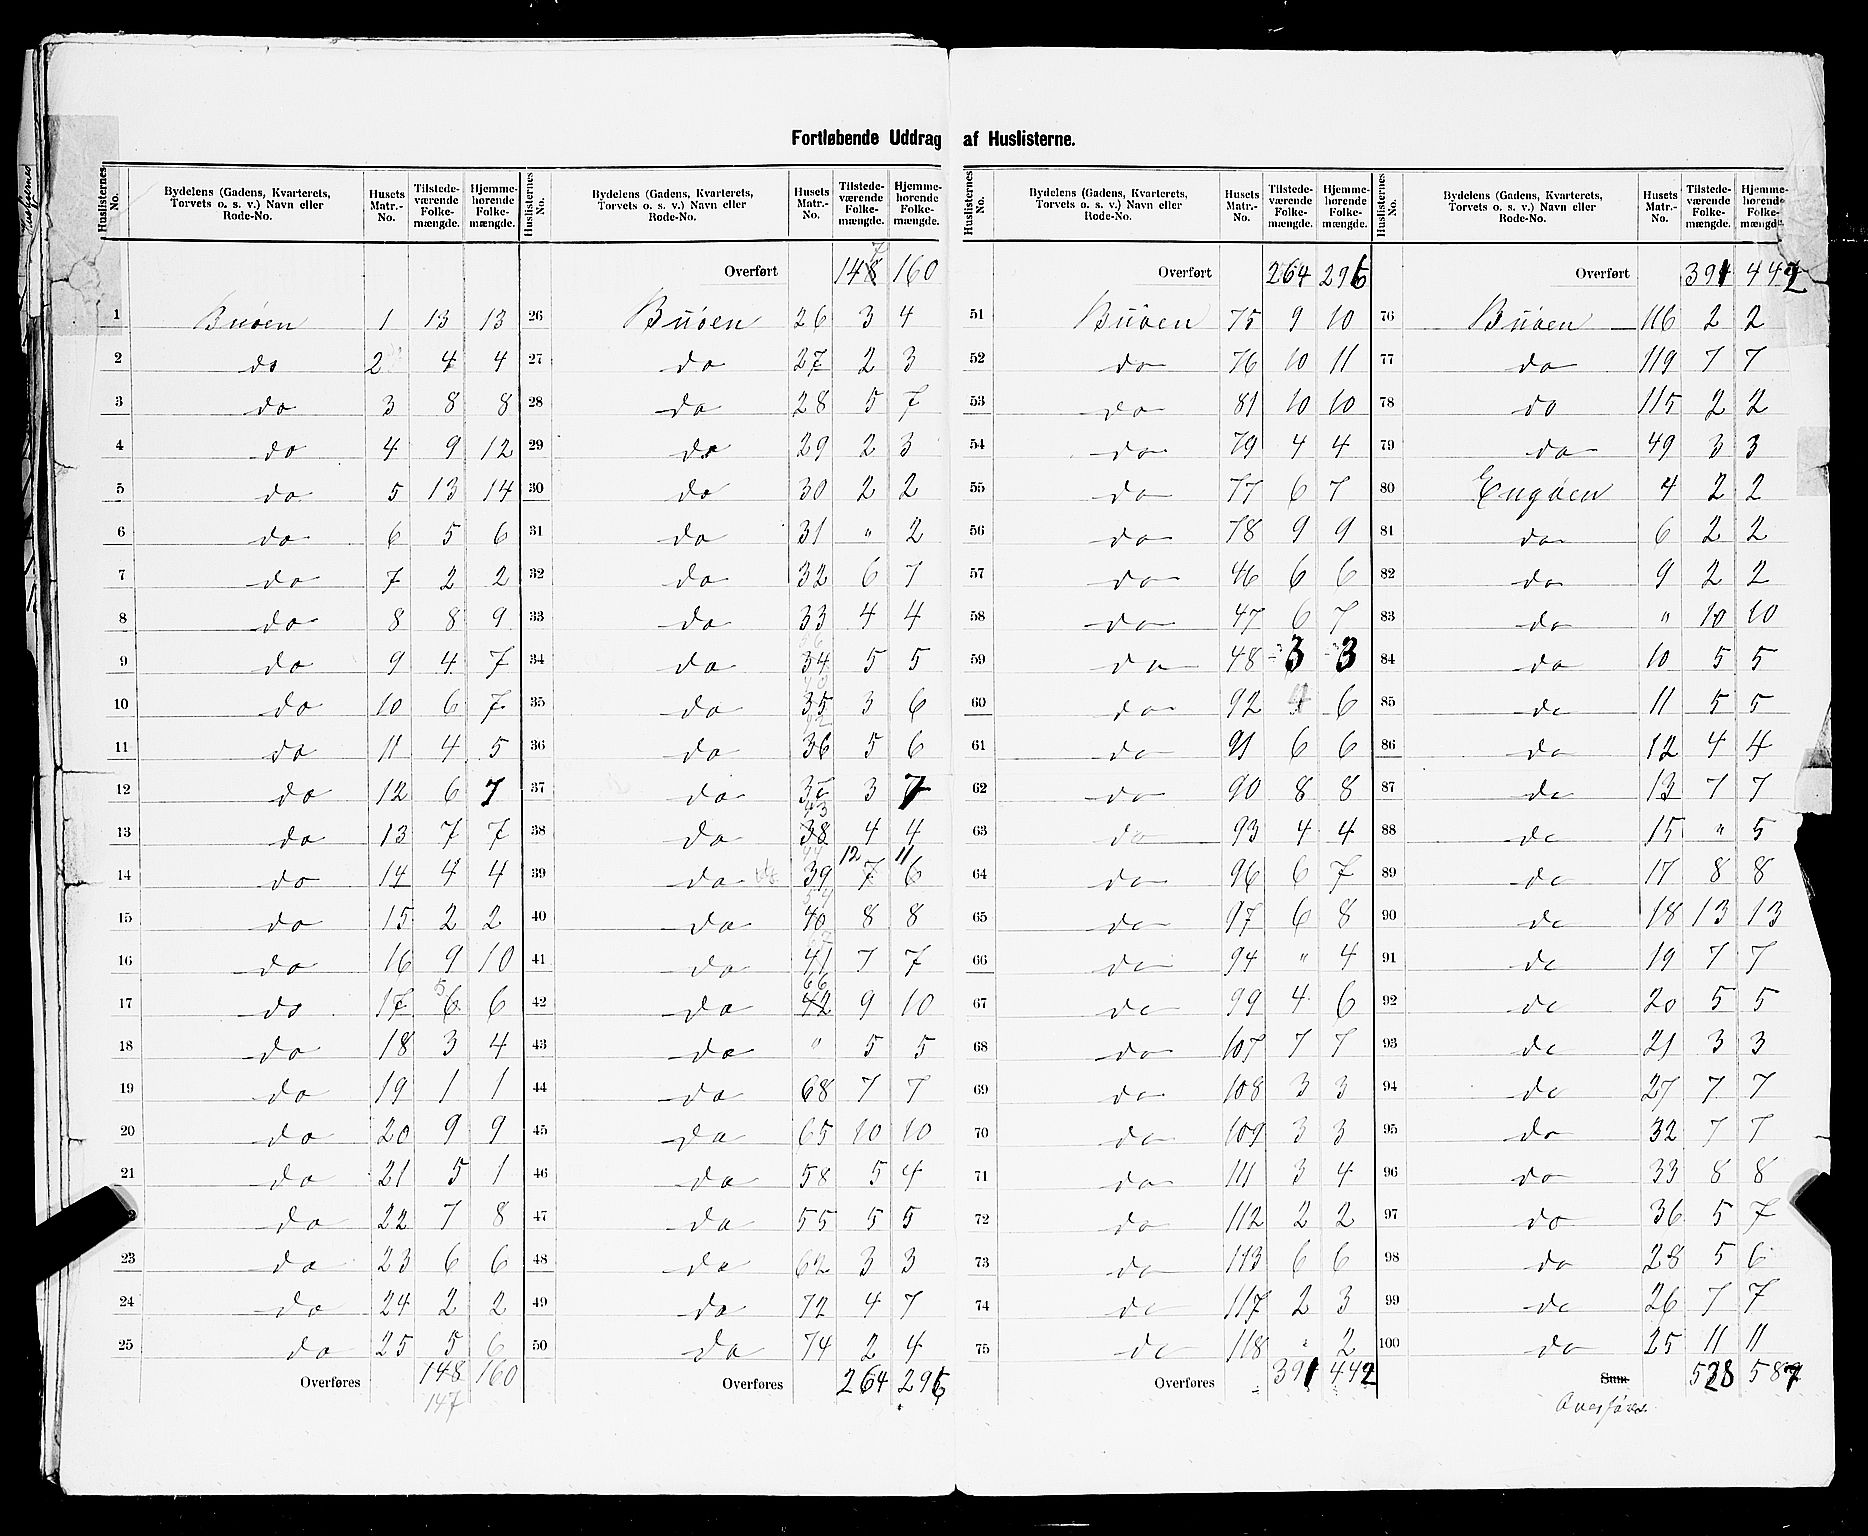 Fortløbende Uddrag af Huslisterne.
Huslisternes No. | Bydelens (Gadens, Kvarterets, Torvets o. s. v.) Navn eller Rode-No. | Husets Matr.-No. | Tilstedeværende Folkemængde. | Hjemmehørende Folkemængde.
1 Buøen 1 13 13
2 do 2 4 4
3 do 3 8 8
4 do 4 9 12
5 do 5 13 14
6 do 6 5 6
7 do 7 2 2
8 do 8 8 9
9 do 9 4 7
10 do 10 6 7
11 do 11 4 5
12 do 12 6 7
13 do 13 7 7
14 do 14 4 4
15 do 15 2 2
16 do 16 9 10
17 do 17 5 6 6
18 do 18 3 4
19 do 19 1 1
20 do 20 9 9
21 do 21 5 1
do 22 7 8
23 do 23 6 6
24 do 24 2 2
25 do 25 5 6
Overføres 148 160
147
Huslisternes No. | Bydelens (Gadens, Kvarterets, Torvets o. s. v.) Navn eller Rode-No. | Husets Matr.-No. | Tilstedeværende Folkemængde. | Hjemmehørende Folkemængde.
7
Overført 148 160
26 Buøen 26 3 4
27 do 27 2 3
28 do 28 5 7
29 do 29 2 3
30 do 30 2 2
31 do 31 " 2
32 do 32 6 7
33 do 33 4 4
34 do 34 5 5
35 do 35 3 6
36 do 36 5 6
37 do 3 7
38 do 38 4 4
39 do 39 12 7 11 6
40 do 40 8 8
41 do 41 7 7
42 do 66 42 9 10
43 do " 5 5
44 do 68 7 7
45 do 65 10 10
46 do 58 5 4
47 do 55 5 5
48 do 62 3 3
49 do 72 4 7
50 do 74 2 4
Overføres 264 296
Huslisternes No. | Bydelens (Gadens, Kvarterets, Torvets o. s. v.) Navn eller Rode-No. | Husets Matr.-No. | Tilstedeværende Folkemængde. | Hjemmehørende Folkemængde.
Overført 264 296
51 Buøen 75 9 10
52 do 76 10 11
53 do 81 10 10
54 do 79 4 4
55 do 77 6 7
56 do 78 9 9
57 do 46 6 6
58 do 47 6 7
59 do 48 3 3
60 do 92 4 6
61 do 91 6 6
62 do 90 8 8
63 do 93 4 4
64 do 96 6 7
65 do 97 6 8
66 do 94 " 4
67 do 99 4 6
68 do 107 7 7
69 do 108 3 3
70 do 109 3 3
71 do 111 3 4
72 do 112 2 2
73 do 113 6 6
74 do 117 2 3
75 do 118 " 2
Overføres 391 442
Huslisternes No. | Bydelens (Gadens, Kvarterets, Torvets o. s. v.) Navn eller Rode-No. | Husets Matr.-No. | Tilstedeværende Folkemængde. | Hjemmehørende Folkemængde.
Overført 391 442
76 Buøen 116 2 2
77 do 119 7 7
78 do 115 2 2
79 do 49 3 3
80 Engøen 4 2 2
81 do 6 2 2
82 do 9 2 2
83 do " 10 10
84 do 10 5 5
85 do 11 5 5
86 do 12 4 4
87 do 13 7 7
88 do 15 " 5
89 do 17 8 8
90 do 18 13 13
91 do 19 7 7
92 do 20 5 5
93 do 21 3 3
94 do 27 7 7
95 do 32 7 7
96 do 33 8 8
97 do 36 5 7
98 do 28 5 6
99 do 26 7 7
100 do 25 11 11
Sum 528 587
Overføres